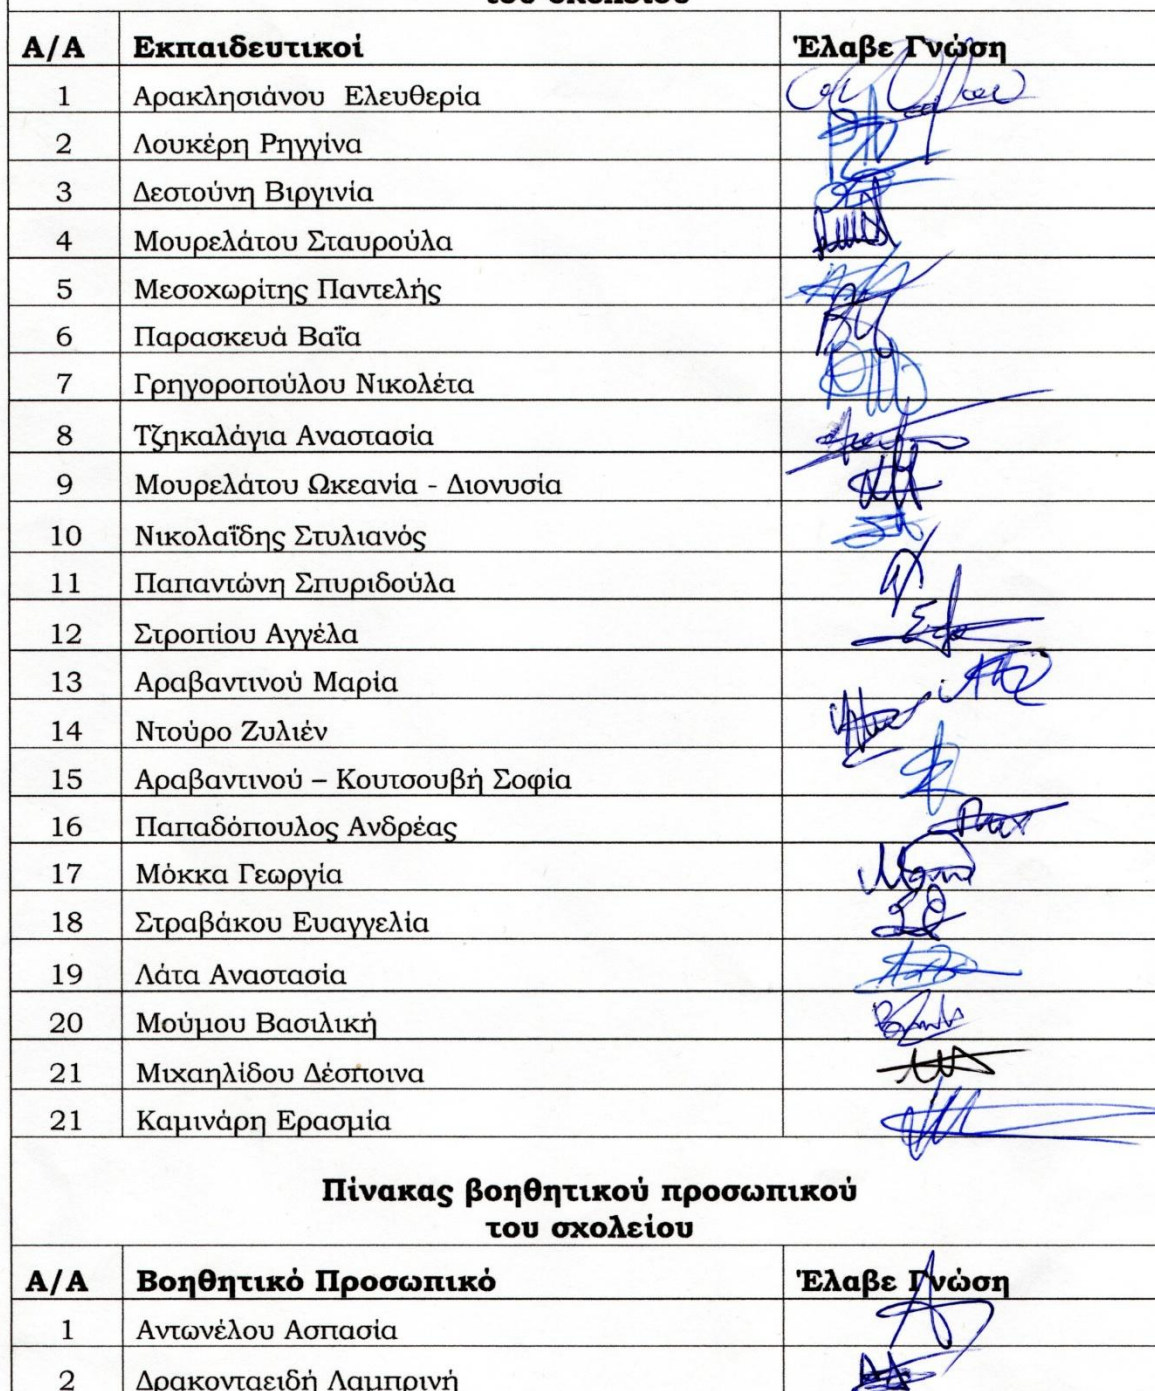 του σχολείου
Α/Α Εκπαιδευτικοί Έλαβε Γνώση
1 Αρακλησιάνου Ελευθερία
2 Λουκέρη Ρηγγίνα
3 Δεστούνη Βιργινία
4 Μουρελάτου Σταυρούλα
5 Μεσοχωρίτης Παντελής
6 Παρασκευά Βαΐα
7 Γρηγοροπούλου Νικολέτα
8 Τζηκαλάγια Αναστασία
9 Μουρελάτου Ωκεανία - Διονυσία
10 Νικολαΐδης Στυλιανός
11 Παπαντώνη Σπυριδούλα
12 Στροπίου Αγγέλα
13 Αραβαντινού Μαρία
14 Ντούρο Ζυλιέν
15 Αραβαντινού – Κουτσουβή Σοφία
16 Παπαδόπουλος Ανδρέας
17 Μόκκα Γεωργία
18 Στραβάκου Ευαγγελία
19 Λάτα Αναστασία
20 Μούμου Βασιλική
21 Μιχαηλίδου Δέσποινα
21 Καμινάρη Ερασμία
Πίνακας βοηθητικού προσωπικού
του σχολείου
Α/Α Βοηθητικό Προσωπικό Έλαβε Γνώση
1 Αντωνέλου Ασπασία
2 Δρακονταειδή Λαμπρινή